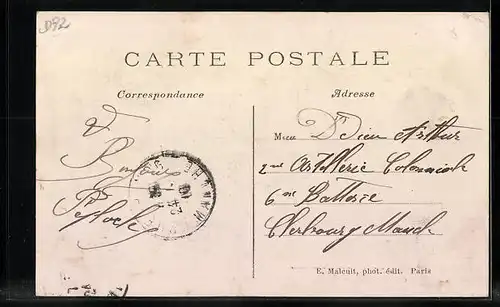 D92
CARTE POSTALE
Correspondance
Adresse
Bonjour
M Dieu Arthur
2me Artillerie Coloniale
6me Batterie
Cherbourg Manche
E. Malcuit, phot. édit. Paris